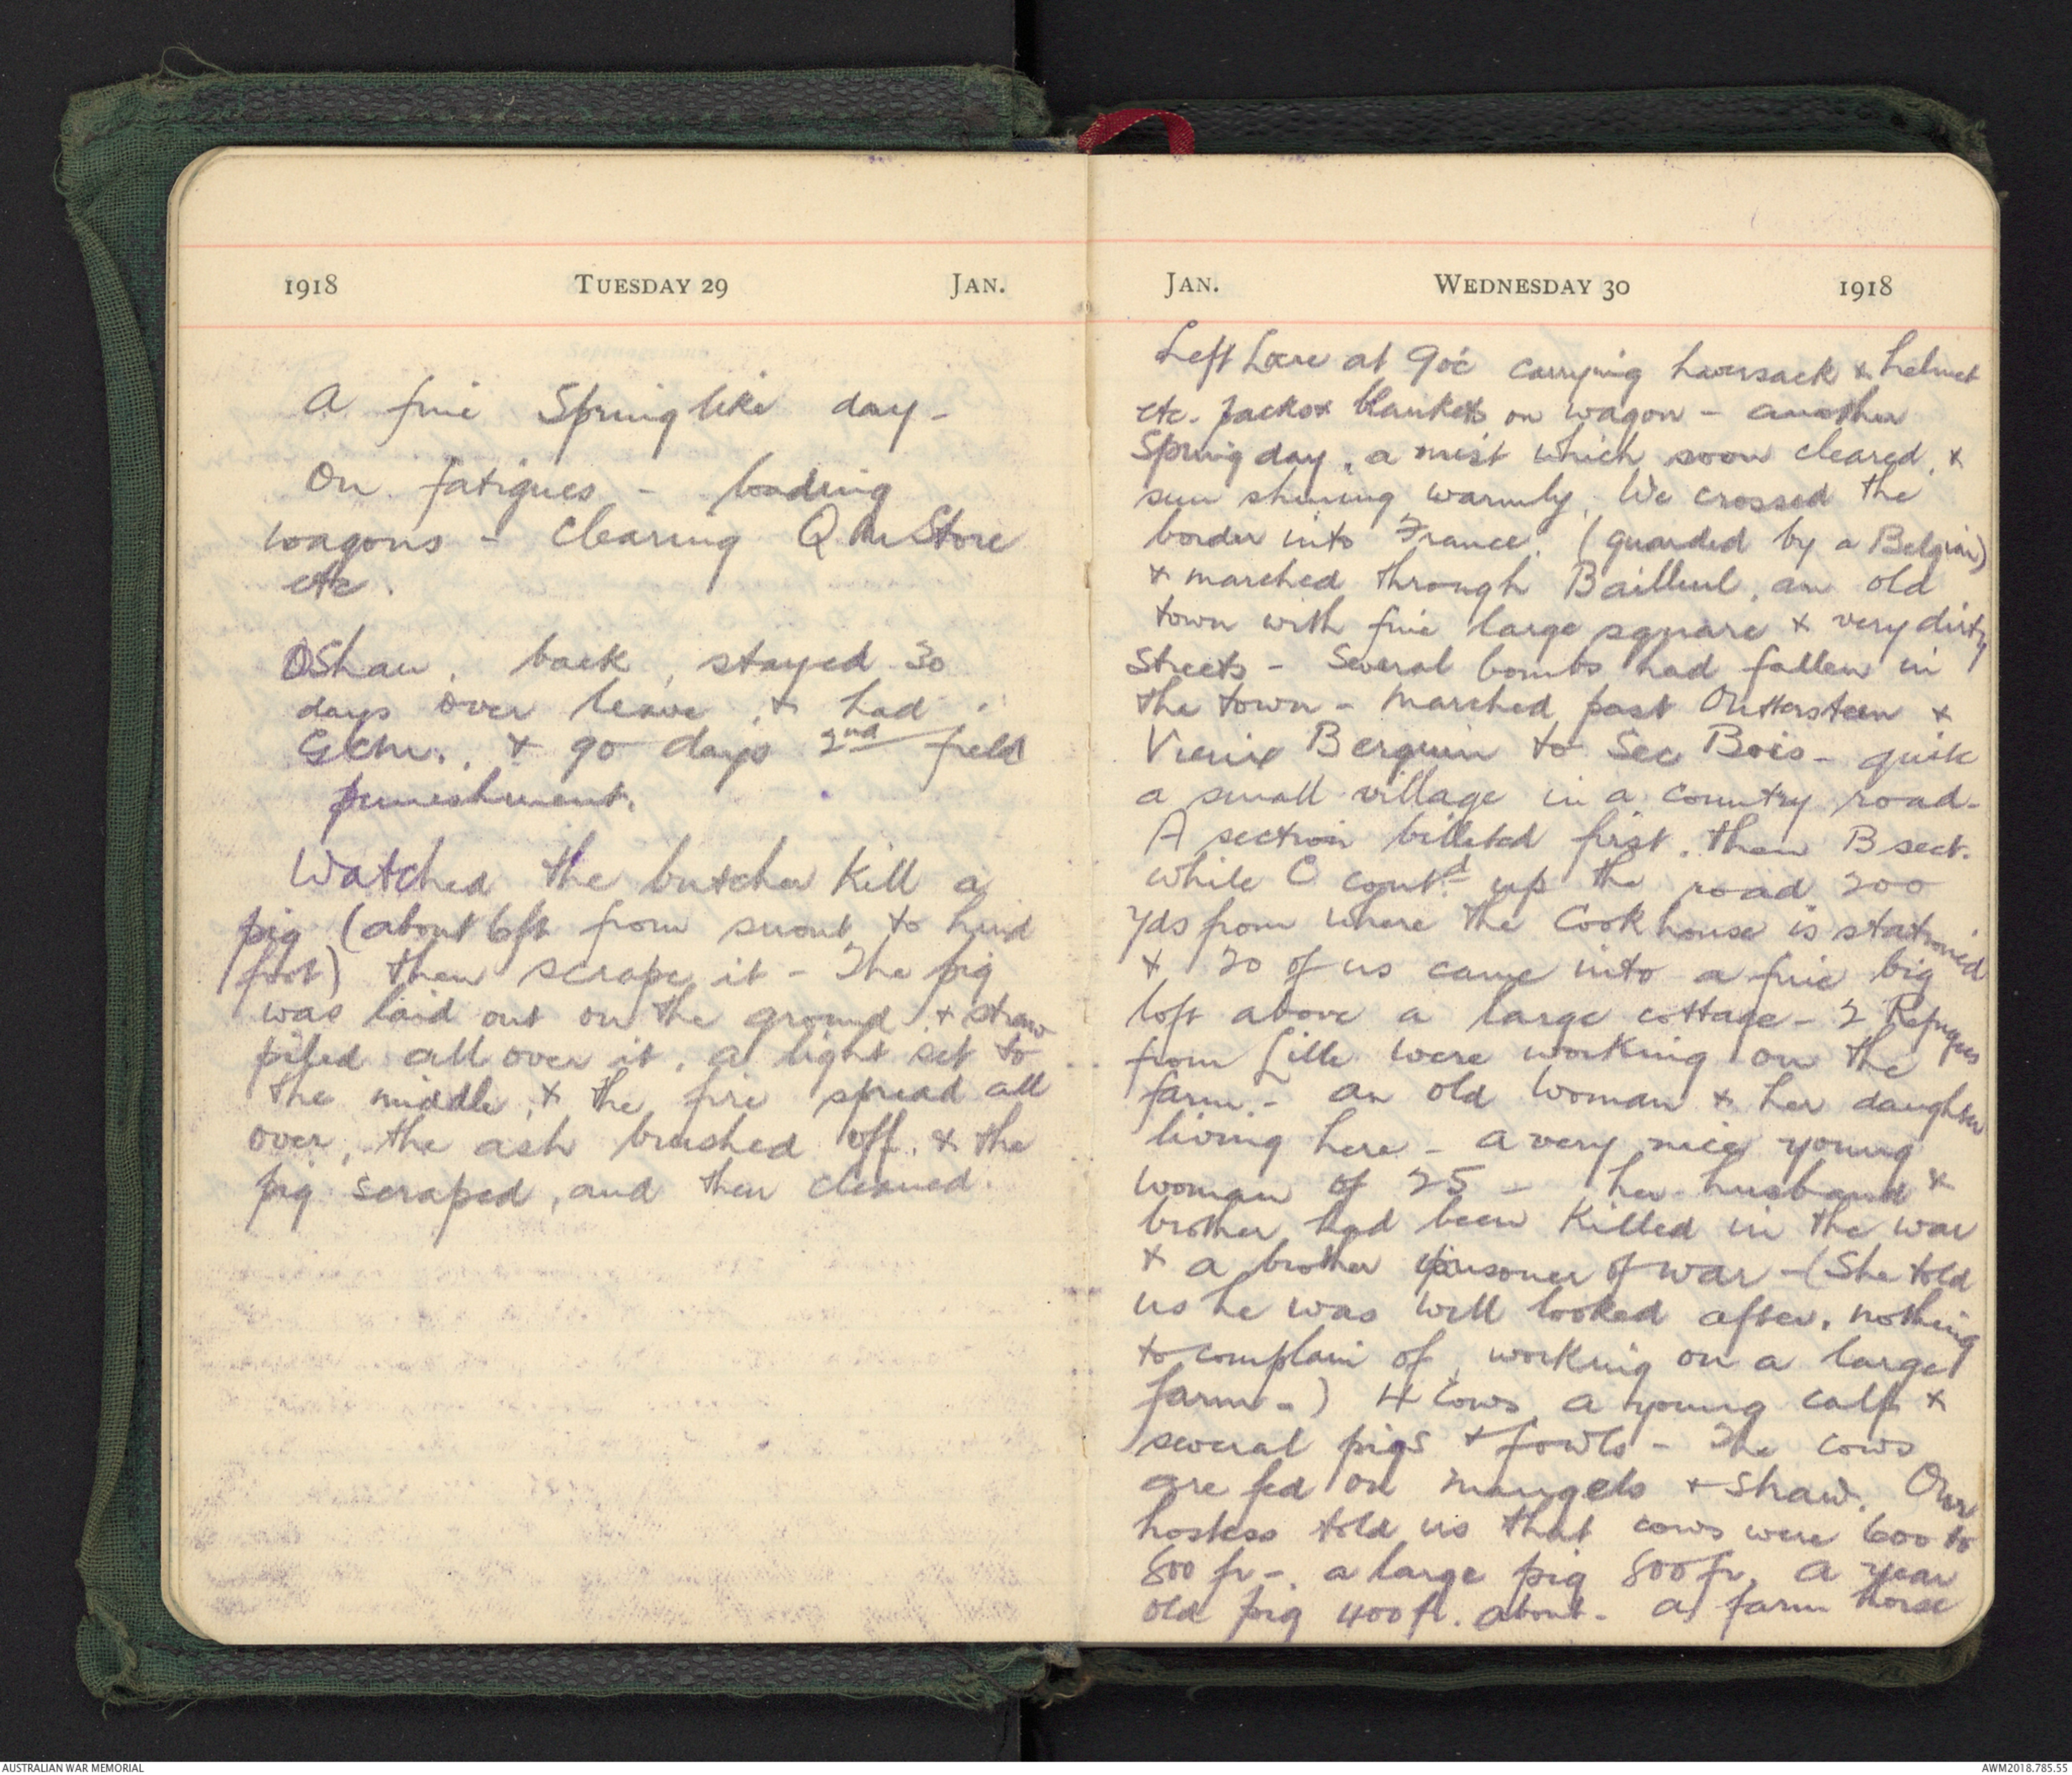 1918 TUESDAY 29 JAN.
A fine Spring like day -
On fatigues - loading
wagons - clearing Q M Store
etc.
OShau, back, stayed 30
days over leave, & had
GCM., & 90 days 2nd field
punishment.
Watched the butcher kill a
pig (about 6ft from snout to hind
foot) then scrape it - The pig
was laid out on the ground & straw
piled all over it, a light set to
the middle, & the fire spread all
over, the ash brushed off, & the
pig scraped, and then cleaned.
JAN. WEDNESDAY 30 1918
Left Locre at 9oc carrying haversack & helmet
etc. packs & blankets on wagon - another
Spring day, a mist which soon cleared, &
sun shining warmly. We crossed the
border into France. (guarded by a Belgian)
& marched through Bailleul, an old
town with fine large square & very dirty
streets - Several bombs had fallen in
the town - marched past Outtersteen &
Vieux Berquin to Sec Bois - quite
a small village in a country road -
A section billeted first, then B sect.
while C contd up the road 200
yds from where the Cookhouse is stationed
& 20 of us came into a fine big
loft above a large cottage - 2 Refugees
from Lille were working on the
farm - an old woman & her daughter
living here - a very nice young
woman of 25 - her husband &
brother had been killed in the war
& a brother prisoner of war - (She told
us he was well looked after, nothing
to complain of, working on a large
farm -) 4 cows a young calf &
several pigs & fowls - The cows
are fed on mangels & straw. Our
hostess told us that cows were 600 to
800 fr -. a large pig 800 fr, a year
old pig 400 fr. about - a farm horse
AUSTRALIAN WAR MEMORIAL
AWM2018.785.55